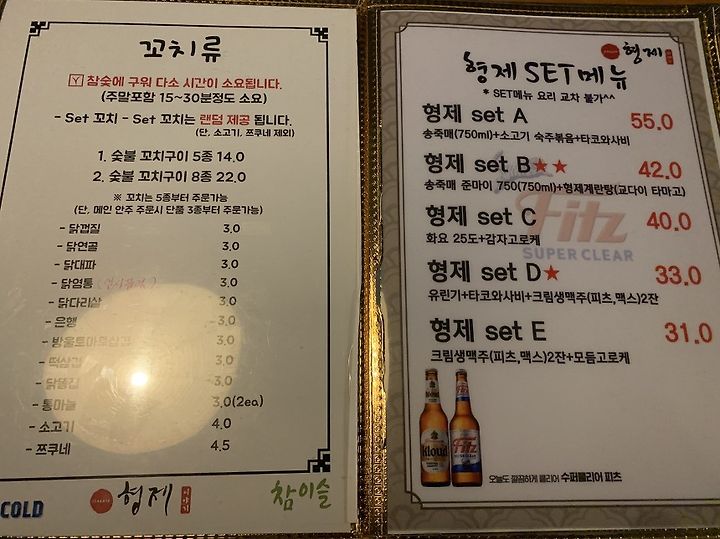 꼬치류
참숯에 구워 다소 시간이 소요됩니다.
(주말포함 15~30분정도 소요)
- Set 꼬치 - Set 꼬치는 랜덤 제공 됩니다.
(단, 소고기, 쯔쿠네 제외)
1. 숯불 꼬치구이 5종 14.0
2. 숯불 꼬치구이 8종 22.0
※ 꼬치는 5종부터 주문가능
(단, 메인 안주 주문시 단품 3종부터 주문가능)
- 닭껍질 3.0
- 닭연골 3.0
- 닭대파 3.0
- 닭염통 3.0
- 닭다리살 3.0
- 은행 3.0
- 방울토마토삼겹 3.0
- 떡삼겹 3.0
- 닭똥집 3.0
- 통마늘 3.0(2ea)
- 소고기 4.0
- 쯔쿠네 4.5
COLD
형제
이야기
참이슬
형제
형제 SET메뉴
* SET메뉴 요리 교차 불가^^
형제 set A 55.0
송죽매(750ml)+소고기 숙주볶음+타코와사비
형제 set B★★ 42.0
송죽매 준마이 750(750ml)+형제계란탕(교다이 타마고)
형제 set C 40.0
화요 25도+감자고로케
Fitz
SUPER CLEAR
형제 set D★ 33.0
유린기+타코와사비+크림생맥주(피츠,맥스)2잔
형제 set E 31.0
크림생맥주(피츠,맥스)2잔+모듬고로케
Kloud
Fitz
오늘도 깔끔하게 클리어 수퍼클리어 피츠